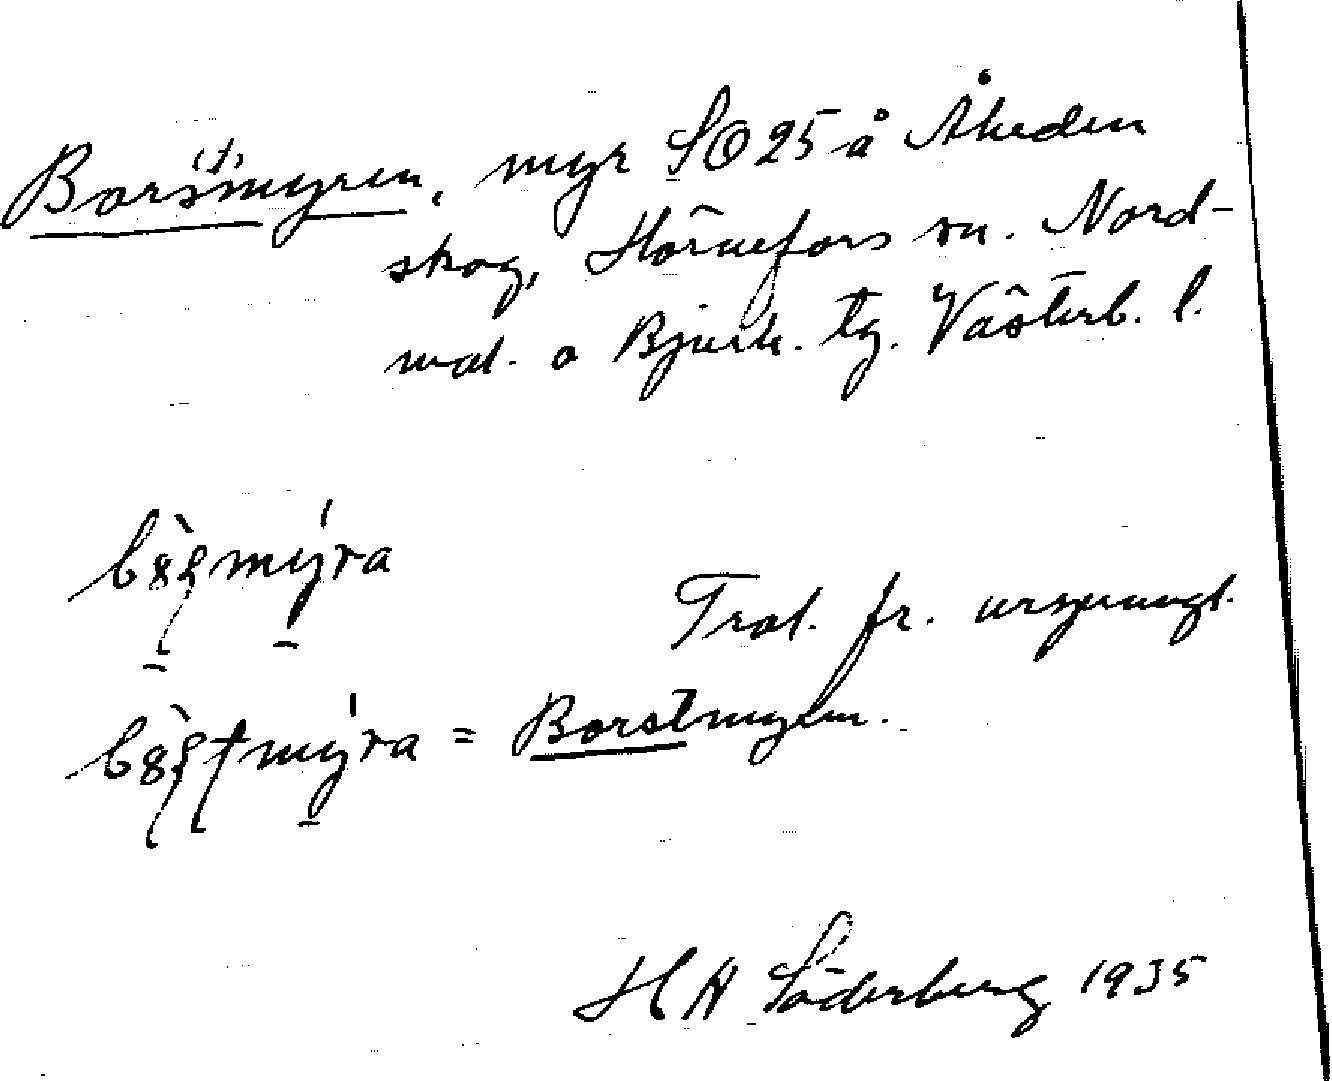 Bors(t)myren, myr SO 25 å Åheden
skog, Hörnefors sn. Nord-
mal. o Bjurh. tg. Västerb. l.
Trol. fr. ursprungl.
= Borstmyren.
H A Söderberg 1935